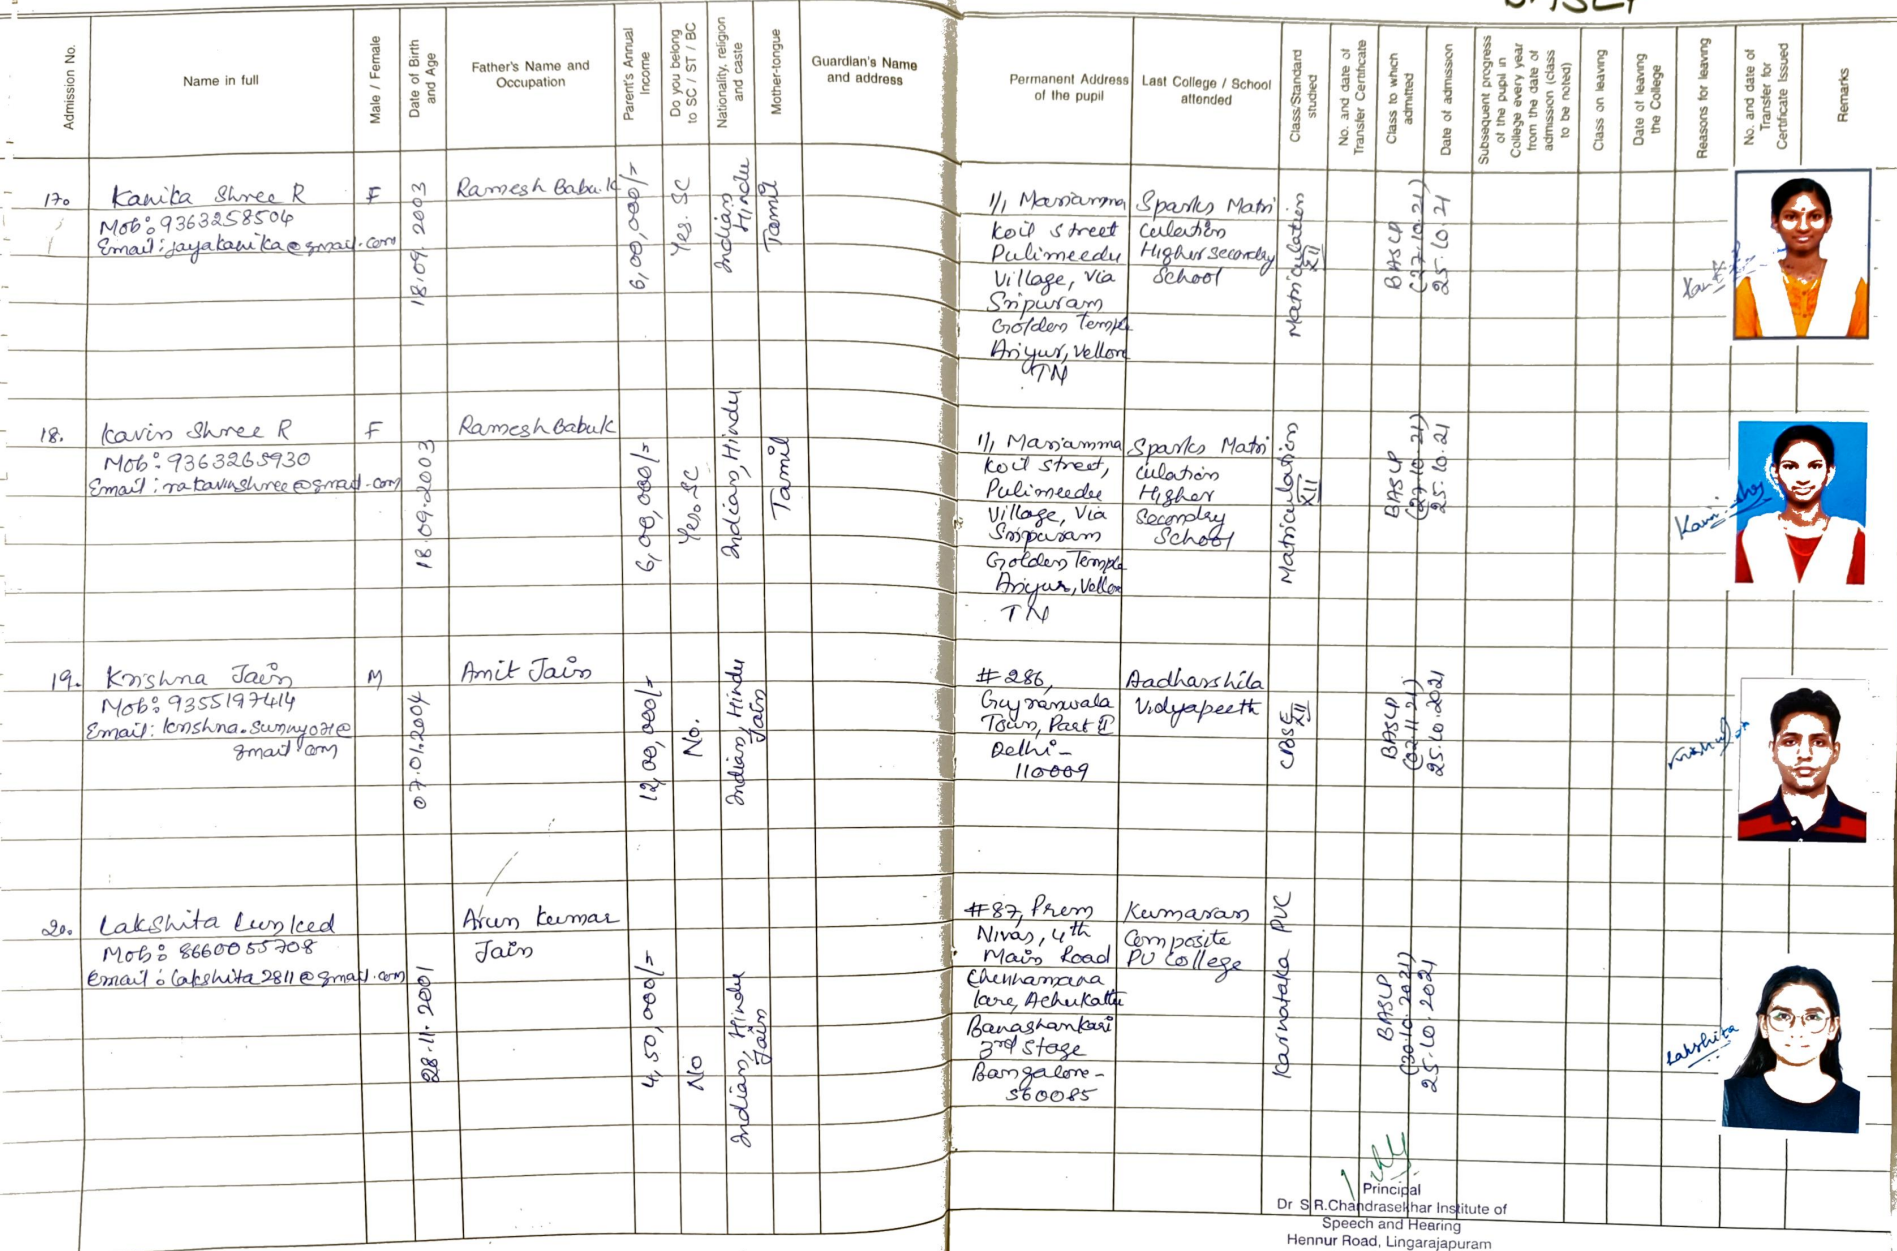 BASLP
Admission No.
Name in full
Male / Female
Date of Birth
and Age
Father's Name and
Occupation
Parent's Annual
Income
Do you belong
to SC / ST / BC
Nationality, religion
and caste
Mother-tongue
Guardian's Name
and address
Permanent Address
of the pupil
Last College / School
attended
Class/Standard
studied
No. and date of
Transfer Certificate
Class to which
admitted
Date of admission
Subsequent progress
of the pupil in
College every year
from the date of
admission (class
to be noted)
Class on leaving
Date of leaving
the College
Reasons for leaving
No. and date of
Transfer for
Certificate Issued
Remarks
17.
Kanika Shree R
Mob: 9363258504
Email: jayakanika@gmail.com
F
18.09.2003
Ramesh Babu K
6,00,000/-
Yes. SC
Indian,
Hindu
Tamil
1/1, Mariamma
Koil Street
Pulimeedu
Village, Via
Sripuram
Golden Temple
Ariyur, Vellore
TN
Sparks Matri
culation
Higher secondry
School
Matriculation
XII
BASLP
(27.10.21)
25.10.21
18.
Kavin Shree R
Mob: 9363265930
Email: rakavinshree@gmail.com
F
18.09.2003
Ramesh Babu K
6,00,000/-
Yes. SC
Indian, Hindu
Tamil
1/1, Mariamma
Koil Street,
Pulimeedu
Village, Via
Sripuram
Golden Temple
Ariyur, Vellore
TN
Sparks Matri
culation
Higher
Secondry
School
Matriculation
XII
BASLP
(27.10.21)
25.10.21
19.
Krishna Jain
Mob: 9355197414
Email: krishna.sunny071@
gmail.com
M
07.01.2004
Amit Jain
12,00,000/-
No.
Indian, Hindu
Jain
#286,
Gujranwala
Town, Part II
Delhi-
110009
Aadharshila
Vidyapeeth
CBSE
XII
BASLP
(02.11.21)
25.10.2021
20.
Lakshita Lunked
Mob: 8660055708
Email: lakshita2811@gmail.com
28.11.2001
Arun Kumar
Jain
4,50,000/-
No
Indian, Hindu
Jain
#87, Prem
Nivas, 4th
Main Road
Chennamana
kere, Achukattu
Banashankari
3rd Stage
Bangalore-
560085
Kumaran
Composite
PU College
Karnataka PUC
BASLP
(30.10.2021)
25.10.2021
Lakshita
Principal
Dr S.R.Chandrasekhar Institute of
Speech and Hearing
Hennur Road, Lingarajapuram